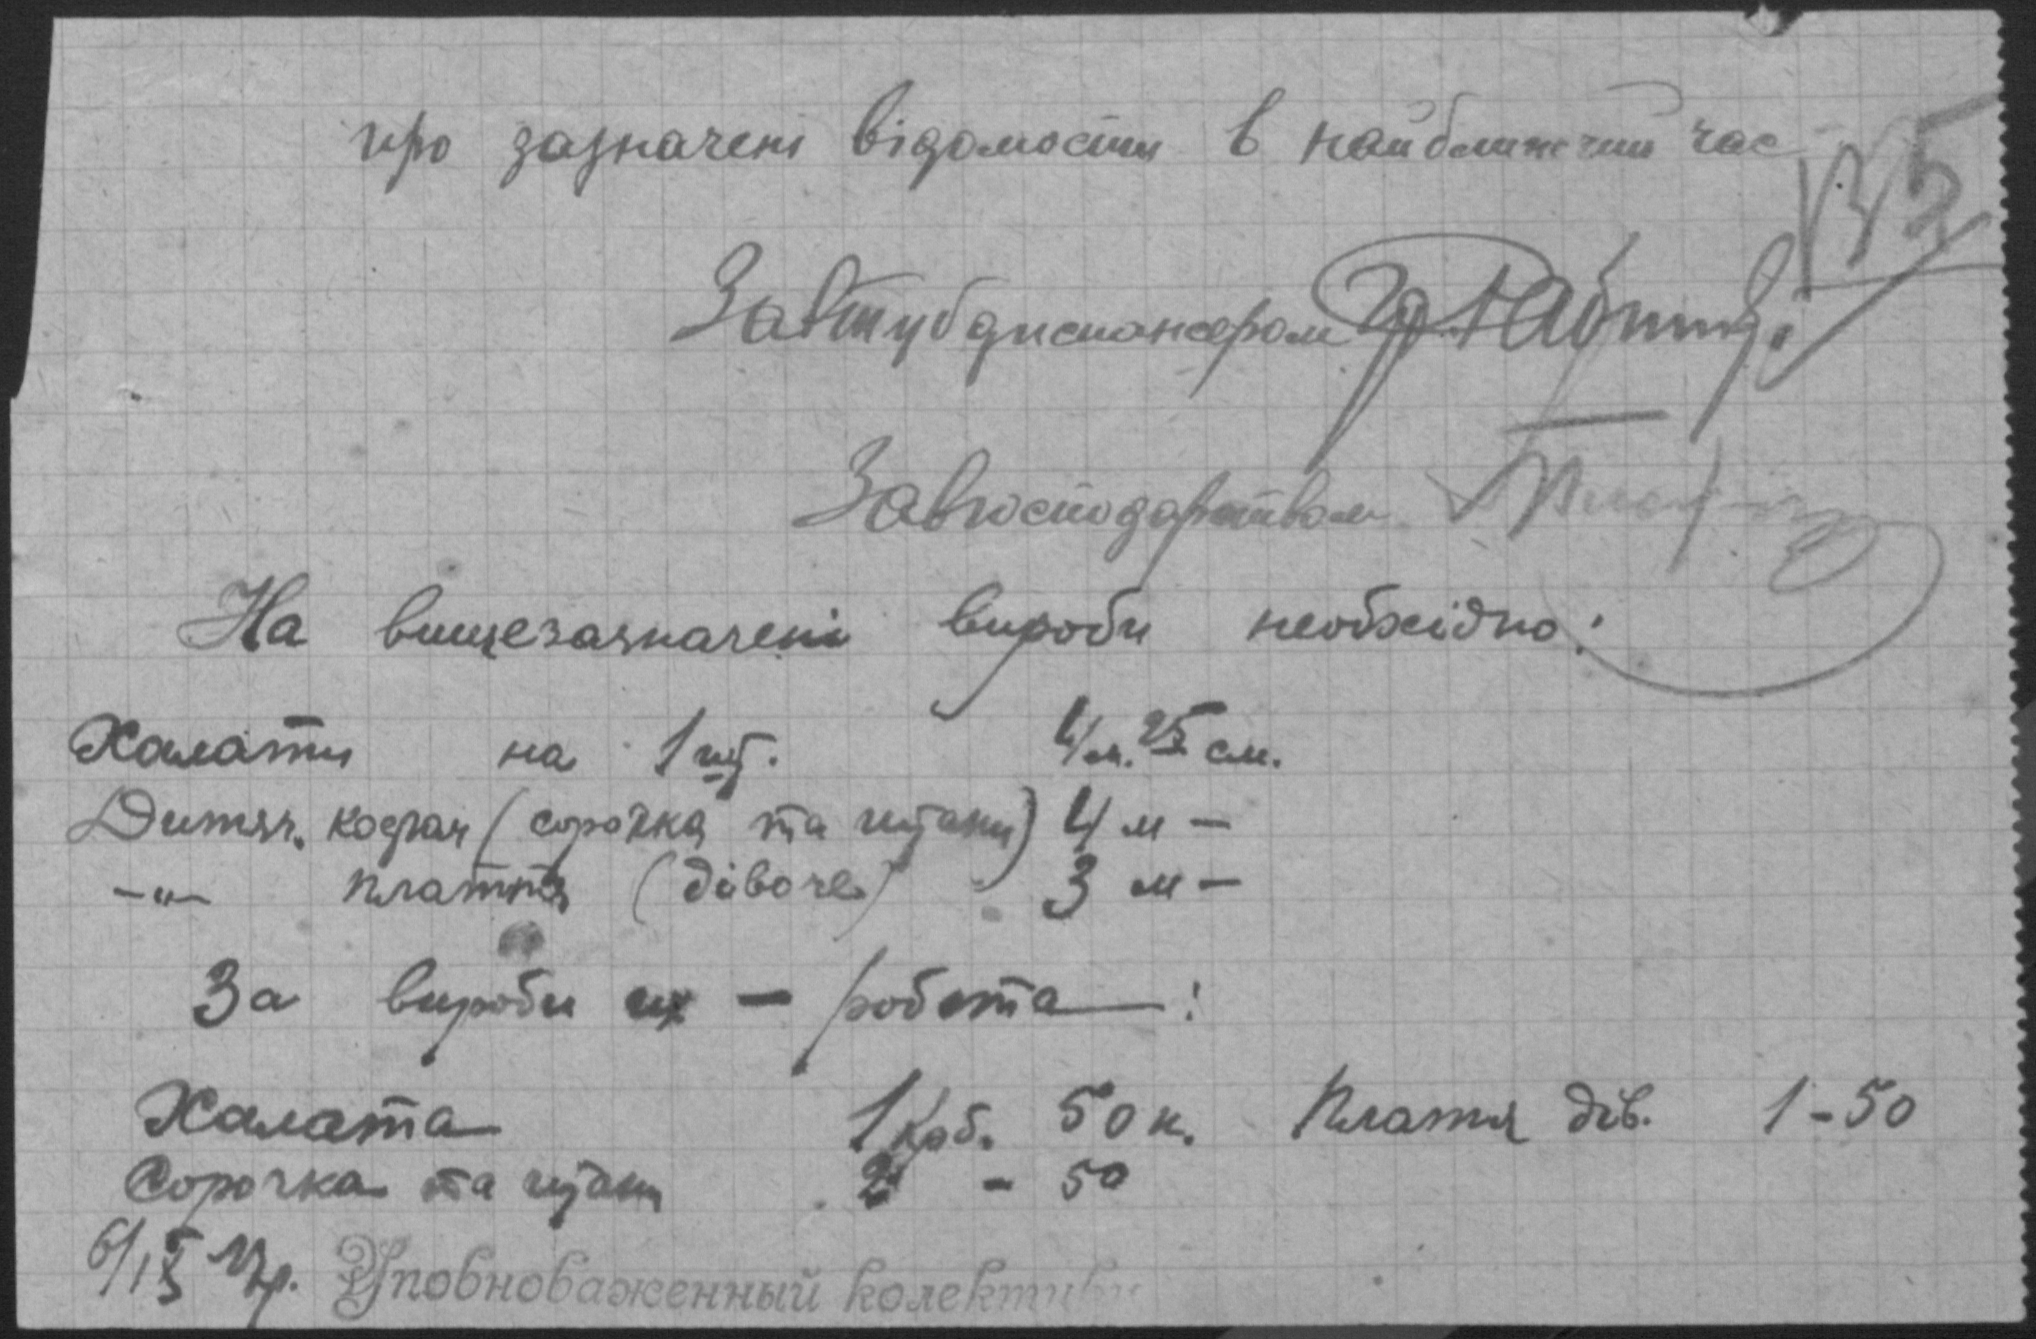 про зазначені відомости в найближчий час
Завтубдиспансером
Завгосподарством
На вищезазначені вироби необхідно:
Халати на 1 шт. 4 м. 25 см.
Дитяч. кофтач (сорочка та штани) 4 м —
—"— плаття (дівоче) 3 м —
За вироби их — робота:
Халата 1 крб. 50 к. Плаття дів. 1-50
Сорочка та штани 2 - 50
Уповноваженный колективу